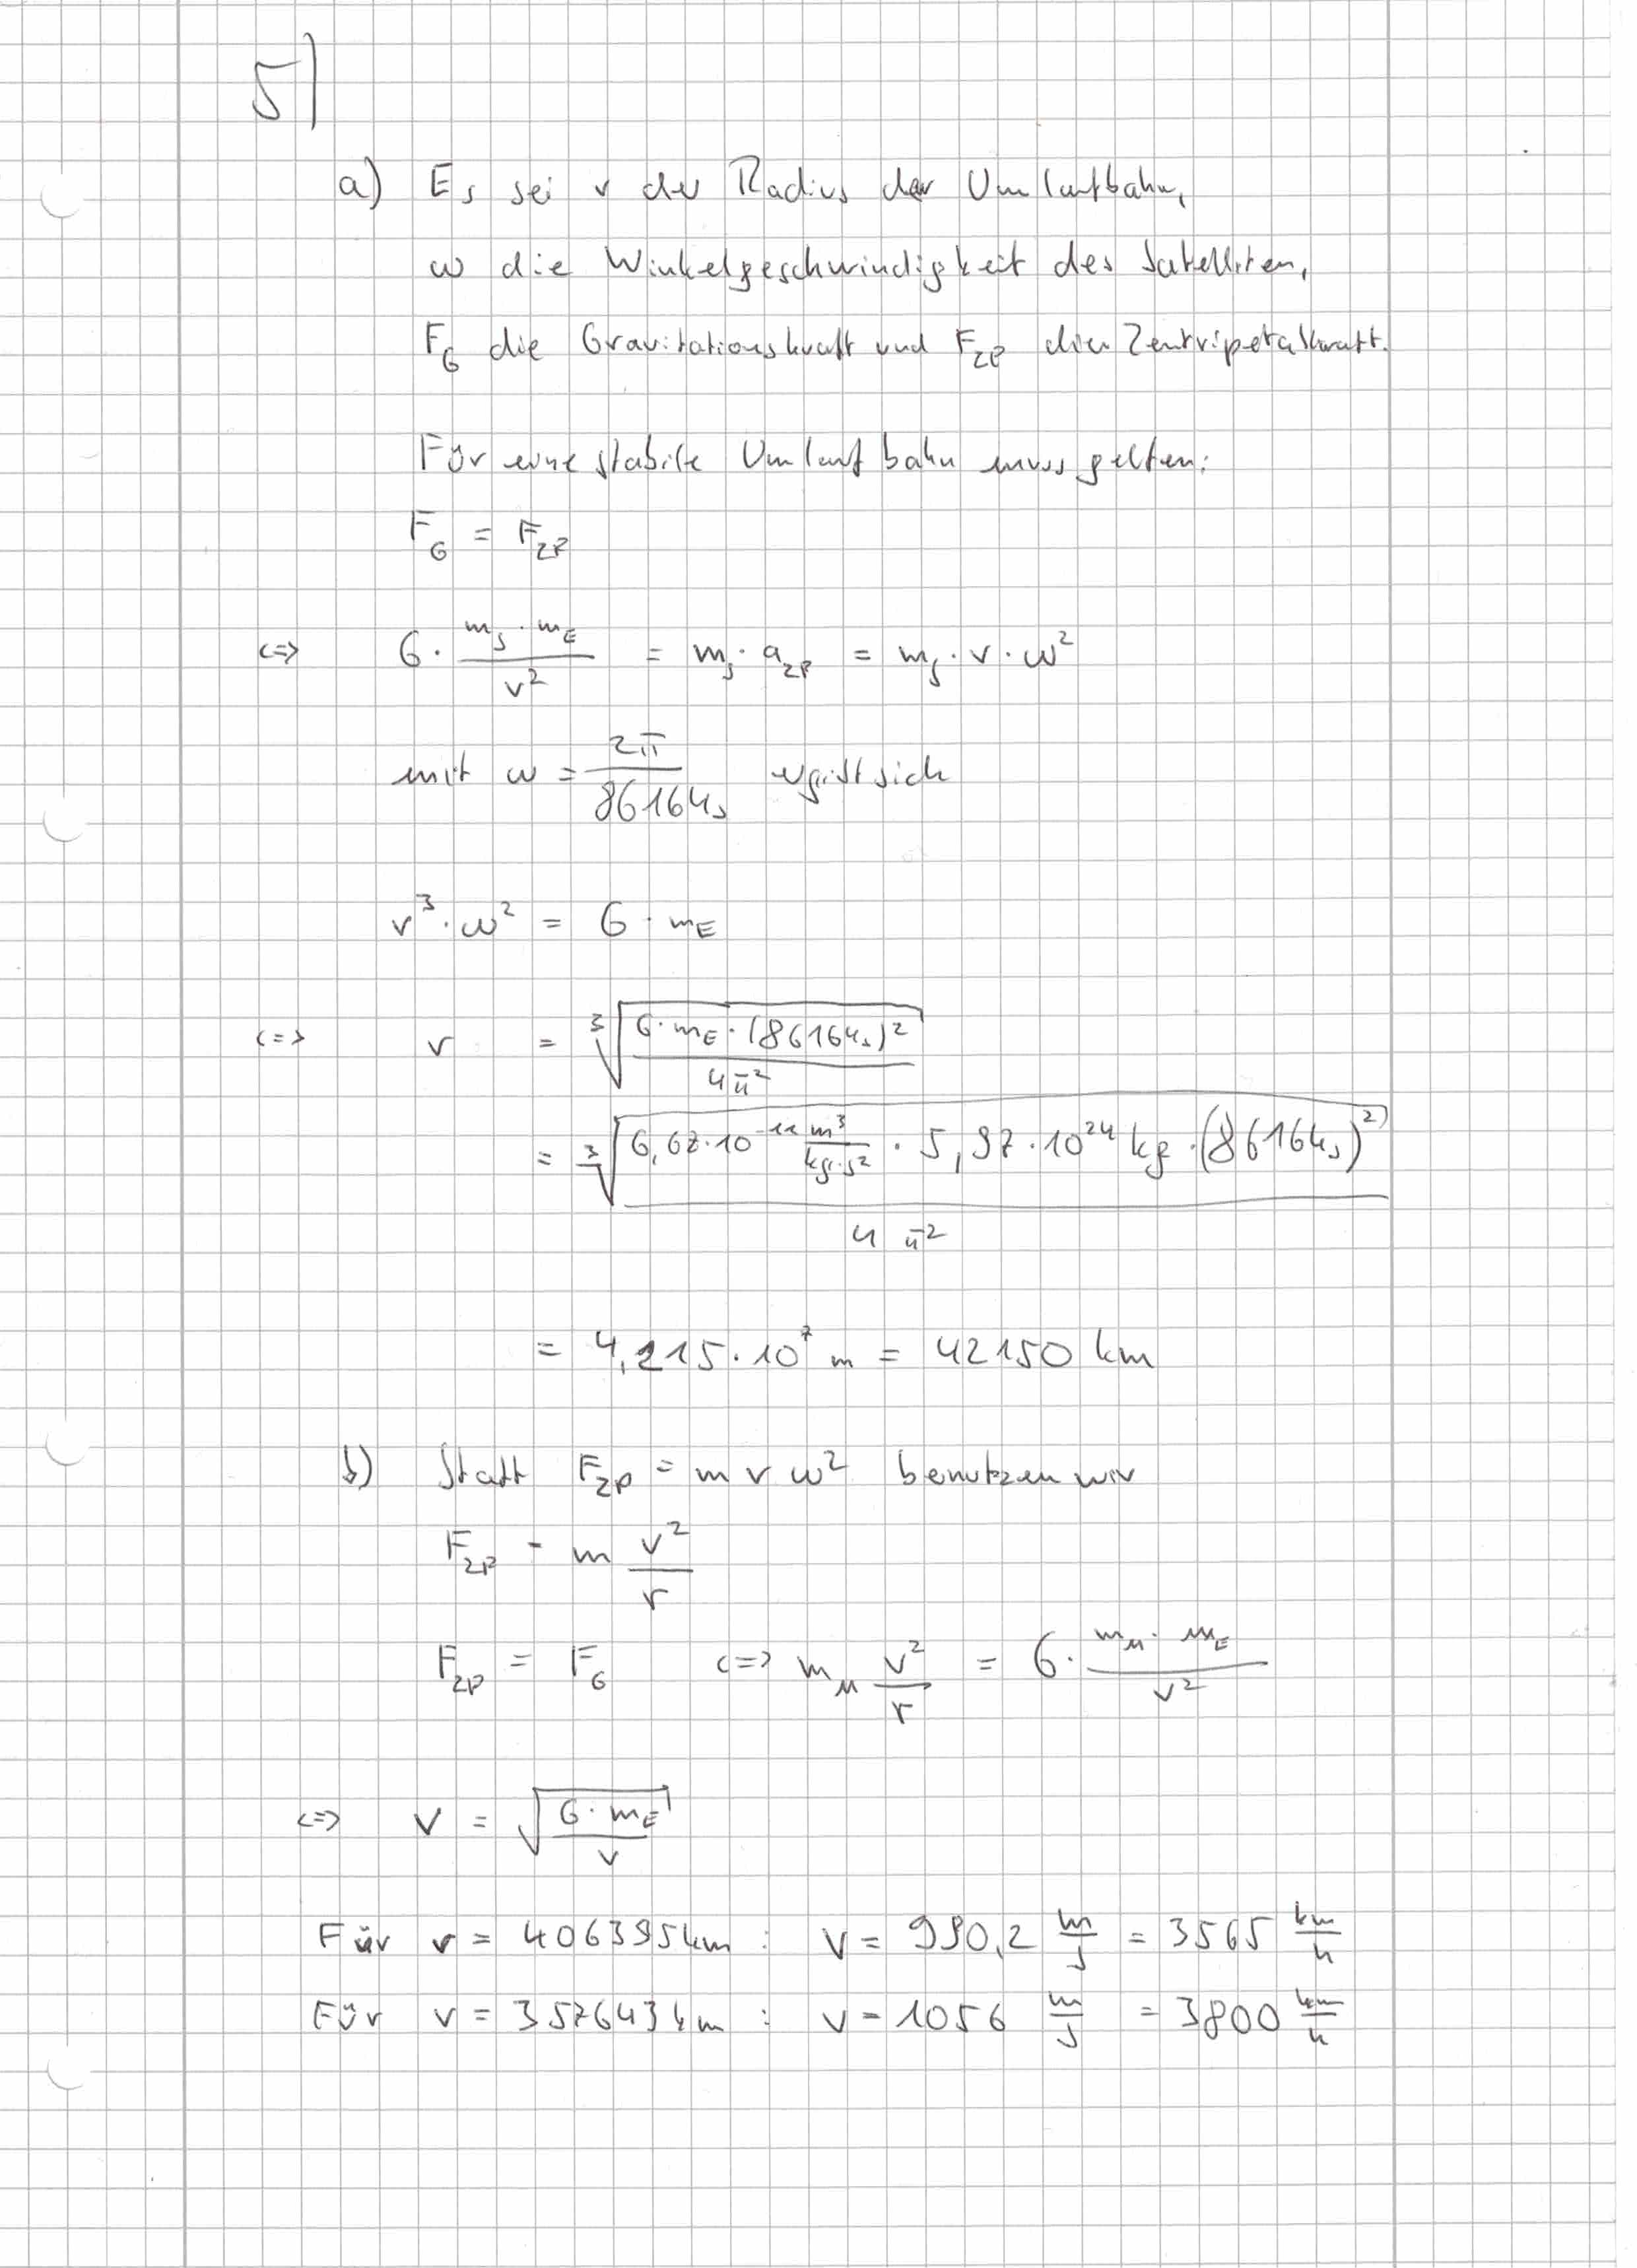 5)
a) Es sei r der Radius der Umlaufbahn,
ω die Winkelgeschwindigkeit des Satelliten,
F_G die Gravitationskraft und F_ZP die Zentripetalkraft.
Für eine stabile Umlaufbahn muss gelten:
F_G = F_ZP
<=> G · (m_S · m_E)/r² = m_S · a_ZP = m_S · r · ω²
mit ω = 2π/86164s ergibt sich
r³ · ω² = G · m_E
<=> r = ³√(G · m_E · (86164s)²/4π²)
= ³√(6,67·10⁻¹¹ m³/(kg·s²) · 5,97·10²⁴ kg · (86164s)²/4π²)
= 4,215·10⁷ m = 42150 km
b) Statt F_ZP = m r ω² benutzen wir
F_ZP = m v²/r
F_ZP = F_G <=> m_M v²/r = G · (m_M · m_E)/r²
<=> v = √(G · m_E/r)
Für r = 406395km : v = 990,2 m/s = 3565 km/h
Für r = 357643km : v = 1056 m/s = 3800 km/h